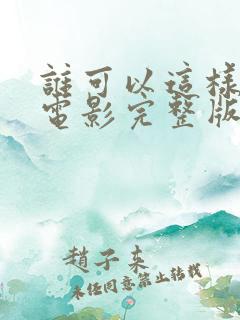 誰可以這樣
電影完整版
趙子來
未任同意禁止转载